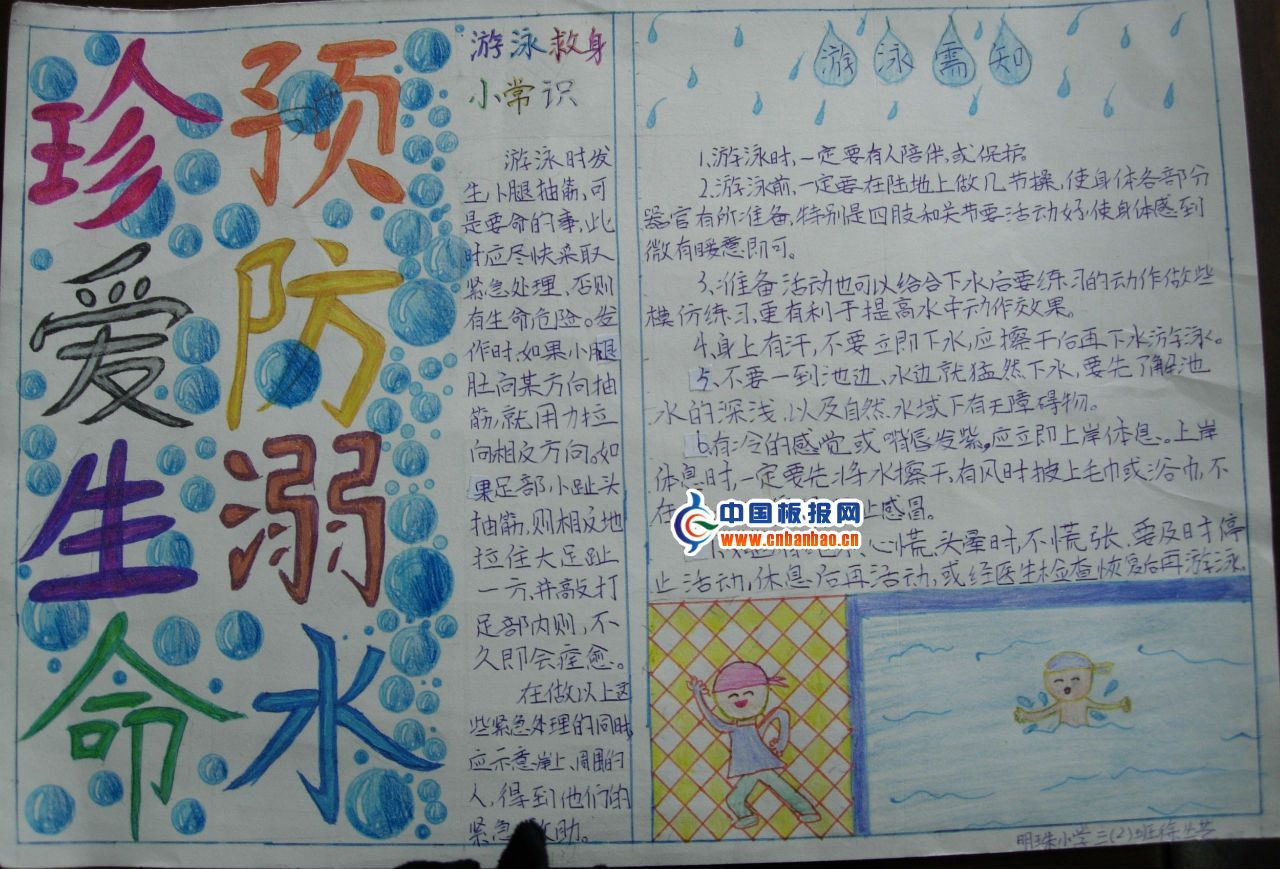 珍爱生命
预防溺水
游泳救身
小常识
游泳时发
生小腿抽筋,可
是要命的事,此
时应尽快采取
紧急处理、否则
有生命危险。发
作时,如果小腿
肚向某方向抽
筋,就用力拉
向相反方向。如
果足部小趾头
抽筋,则相反地
拉住大足趾
一方,并敲打
足部内则,不
久即会痊愈。
在做以上这
些紧急处理的同时,
应示意岸上、周围的
人,得到他们的
紧急
助。
游泳需知
1、游泳时,一定要有人陪伴,或保护。
2、游泳前,一定要在陆地上做几节操,使身体各部分
器官有所准备,特别是四肢和关节要活动好,使身体感到
微有暖意即可。
3、准备活动也可以给合下水后要练习的动作做些
模仿练习,更有利于提高水中动作效果。
4、身上有汗,不要立即下水,应擦干后再下水游泳。
5、不要一到池边、水边就猛然下水,要先了解池
水的深浅,以及自然水域下有无障碍物。
6、有冷的感觉或嘴唇发紫,应立即上岸休息。上岸
休息时,一定要先将水擦干,有风时披上毛巾或浴巾,不
在
上感冒。
心慌、头晕时,不慌张,要及时停
止活动,休息后再活动,或经医生检查恢复后再游泳。
中国板报网
www.cnbanbao.cn
明珠小学三(2)班徐